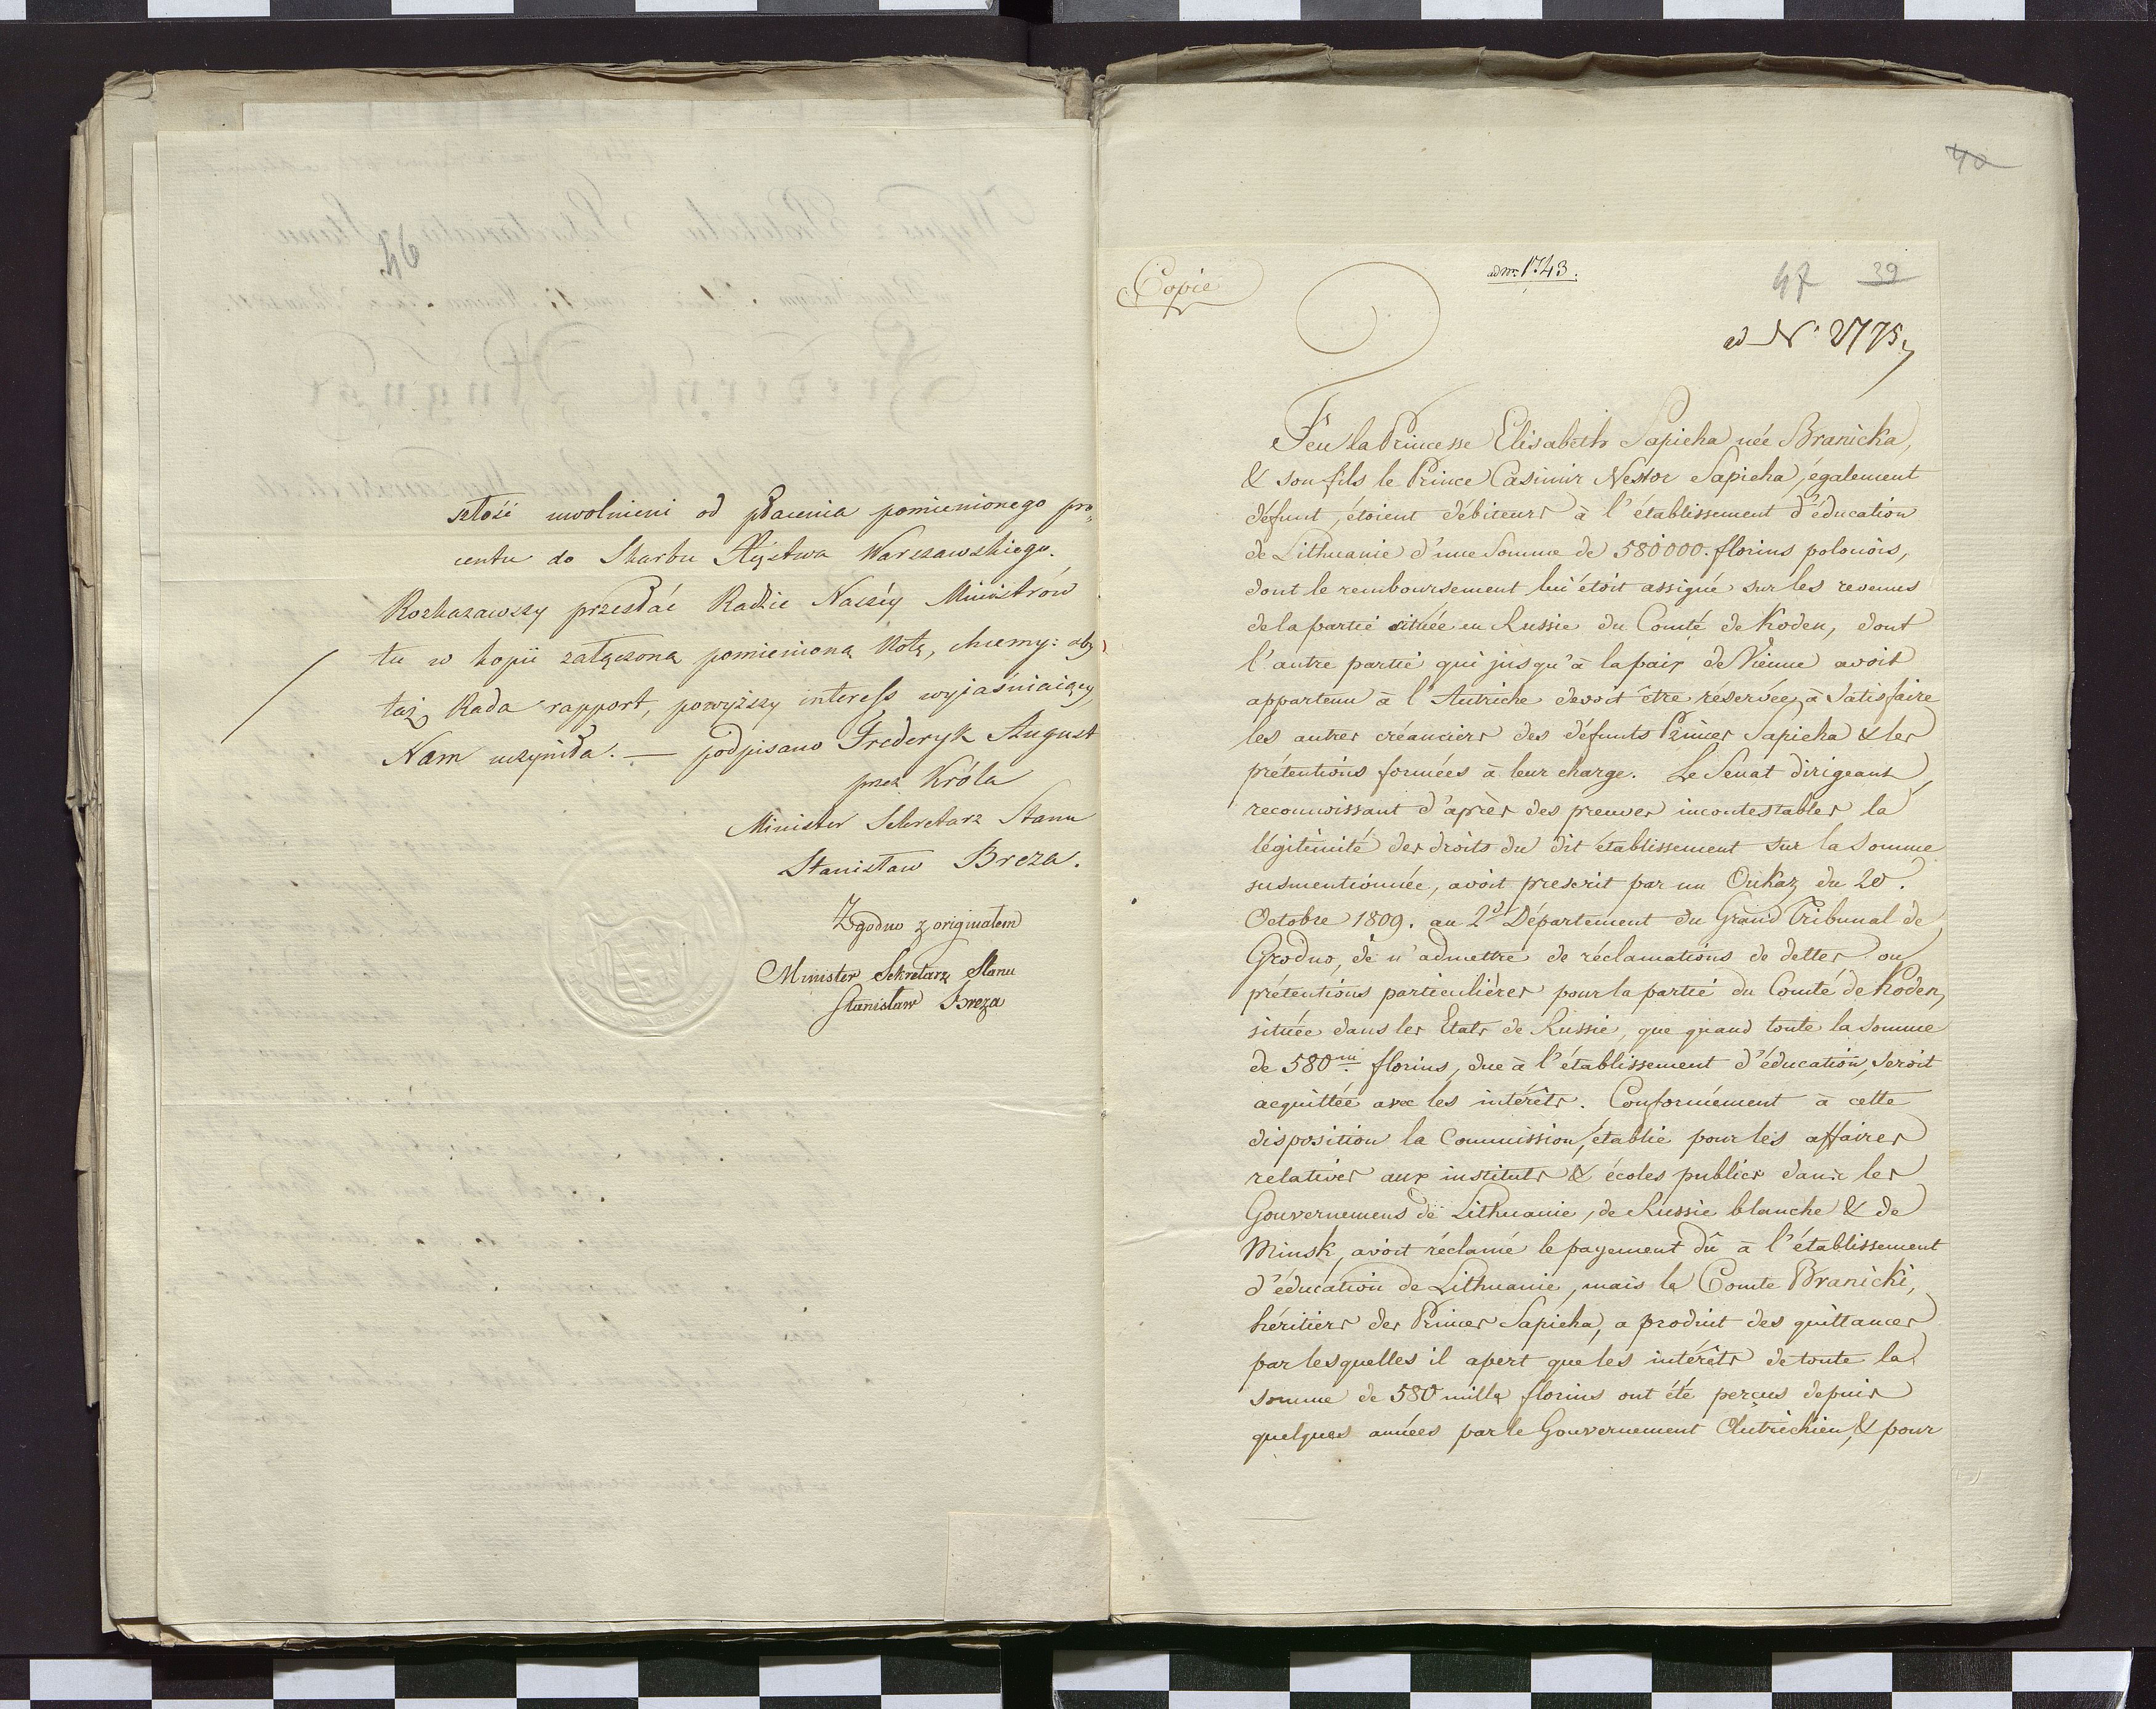 szłość uwolnieni od płacenia pomienionego pro-
centu do Skarbu Xięstwa Warszawskiego.
Rozkazawszy przesłać Radzie Naszéy Ministrów
tu w kopii załączoną pomienioną Notę, chcemy: aby
taż Rada rapport, powyższy interess wyiaśniaiący,
Nam uczyniła. — podpisano Frederyk August
przez Króla
Minister Sekretarz Stanu
Stanisław Breza.
Zgodno z originałem
Minister Sekretarz Stanu
Stanisław Breza
40
Copie
ad Nr. 1743.
47 39
ad N° 2775
Feu la Princesse Elisabeth Sapieha née Branicka,
& son fils le Prince Casimir Nestor Sapieha, également
défunt, étoient débiteurs à l'établissement d'éducation
de Lithuanie d'une Somme de 580000. florins polonois,
dont le remboursement lui étoit assigné sur les revenus
de la partie située en Russie du Comté de Koden, dont
l'autre partie qui jusqu'à la paix de Vienne avoit
appartenu à l'Autriche devoit être réservée à Satisfaire
les autres créanciers des défunts Princes Sapieha & les
prétentions formées à leur charge. Le Senat dirigeant,
reconnoissant d'après des preuves incontestables la
légitimité des droits du dit établissement sur la Somme
susmentionnée, avoit prescrit par un Oukaz du 20.
Octobre 1809. au 2d Département du Grand Tribunal de
Grodno, de n'admettre de réclamations de dettes ou
prétentions particulières pour la partie du Comté de Koden,
située dans les Etats de Russie, que quand toute la Somme
de 580m florins, due à l'établissement d'éducation, seroit
acquittée avec les intérêts. Conformément à cette
disposition la Commission, établie pour les affaires
relatives aux instituts & écoles publics dans les
Gouvernemens de Lithuanie, de Russie blanche & de
Minsk, avoit réclamé le payement dû à l'établissement
d'éducation de Lithuanie, mais le Comte Branicki,
héritiers des Princes Sapieha, a produit des quittances
par lesquelles il apert que les intérêts de toute la
somme de 580 mille florins ont été perçus depuis
quelques années par le Gouvernement Autrichien, & pour